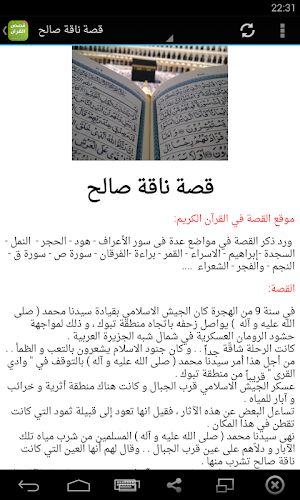 22:31
قصص
القرآن
قصة ناقة صالح
قصة ناقة صالح
موقع القصة في القرآن الكريم:
ورد ذكر القصة في مواضع عدة في سور الأعراف - هود - الحجر - النمل -
السجدة -إبراهيم - الاسراء - القمر - براءة -الفرقان - سورة ص - سورة ق -
النجم - والفجر - الشعراء ....
القصة:
في سنة 9 من الهجرة كان الجيش الاسلامي بقيادة سيدنا محمد ( صلى
الله عليه و آله ) يواصل زحفه باتجاه منطقة تبوك ، و ذلك لمواجهة
حشود الرومان العسكرية في شمال شبه الجزيرة العربية .
كانت الرحلة شاقّة جداً . . و كان جنود الاسلام يشعرون بالتعب و الظمأ . .
من أجل هذا أمر سيدنا محمد ( صلى الله عليه و آله ) بالتوقف في " وادي
القرى " قريباً من منطقة تبوك .
عسكر الجيش الاسلامي قرب الجبال و كانت هناك منطقة أثرية و خرائب
و آبار للمياه .
تساءل البعض عن هذه الآثار ، فقيل انها تعود إلى قبيلة ثمود التي كانت
تقطن في هذا المكان .
نهى سيدنا محمد ( صلى الله عليه و آله ) المسلمين من شرب مياه تلك
الآبار و دلاّهم على عين قرب الجبال . . وقال لهم أنها العين التي كانت
ناقة صالح تشرب منها .